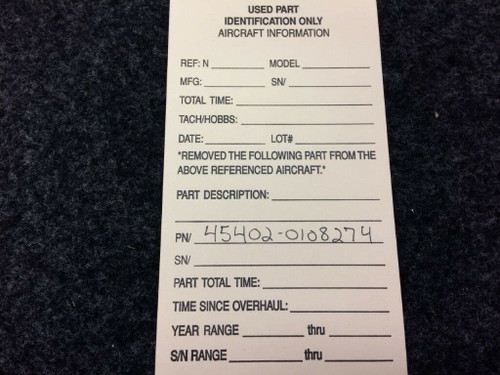 USED PART
IDENTIFICATION ONLY
AIRCRAFT INFORMATION
REF: N ________ MODEL ________
MFG: ________ SN/ ________
TOTAL TIME: ________
TACH/HOBBS: ________
DATE: ________ LOT# ________
*REMOVED THE FOLLOWING PART FROM THE
ABOVE REFERENCED AIRCRAFT.*
PART DESCRIPTION: ________
PN/ 45402-0108274
SN/ ________
PART TOTAL TIME: ________
TIME SINCE OVERHAUL: ________
YEAR RANGE ________ thru ________
S/N RANGE ________ thru ________